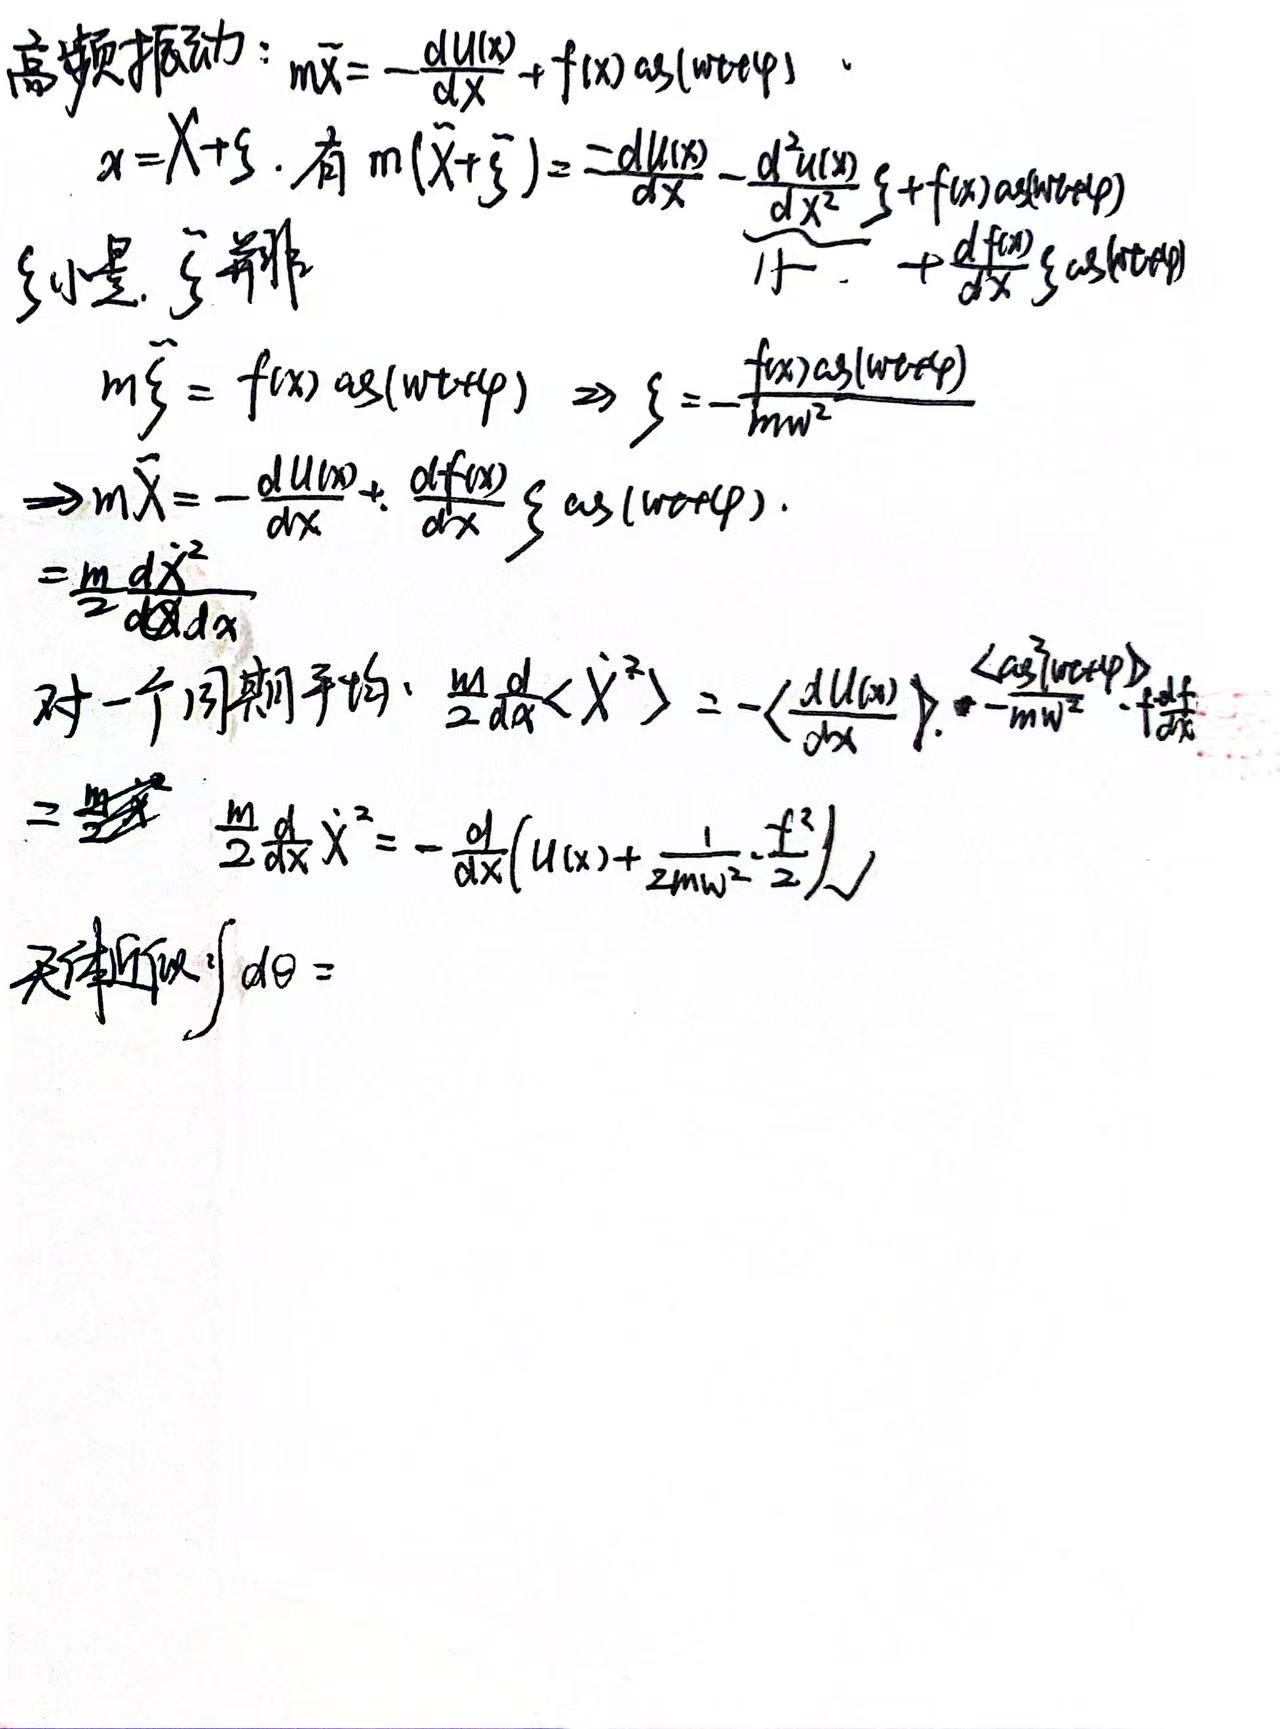 高频振动: mẍ = -dU(x)/dx + f(x) cos(ωt+φ).
x = X+ξ. 有 m(Ẍ+ξ̈) = -dU(x)/dx - d²U(x)/dx² ξ + f(x) cos(ωt+φ)
ξ小量. ξ̈ 并非 小. + df(x)/dx ξ cos(ωt+φ)
mξ̈ = f(x) cos(ωt+φ) ⇒ ξ = -f(x) cos(ωt+φ)/mω²
⇒ mẌ = -dU(x)/dx + df(x)/dx ξ cos(ωt+φ).
= m/2 dẊ²/dx
对一个周期平均. m/2 d/dx <Ẋ²> = -<dU(x)/dx>. -<cos²(ωt+φ)>/mω² · f df/dx
= m/2 d/dx Ẋ² = -d/dx (U(x) + 1/2mω² · f²/2)
天体近似: ∫dθ =